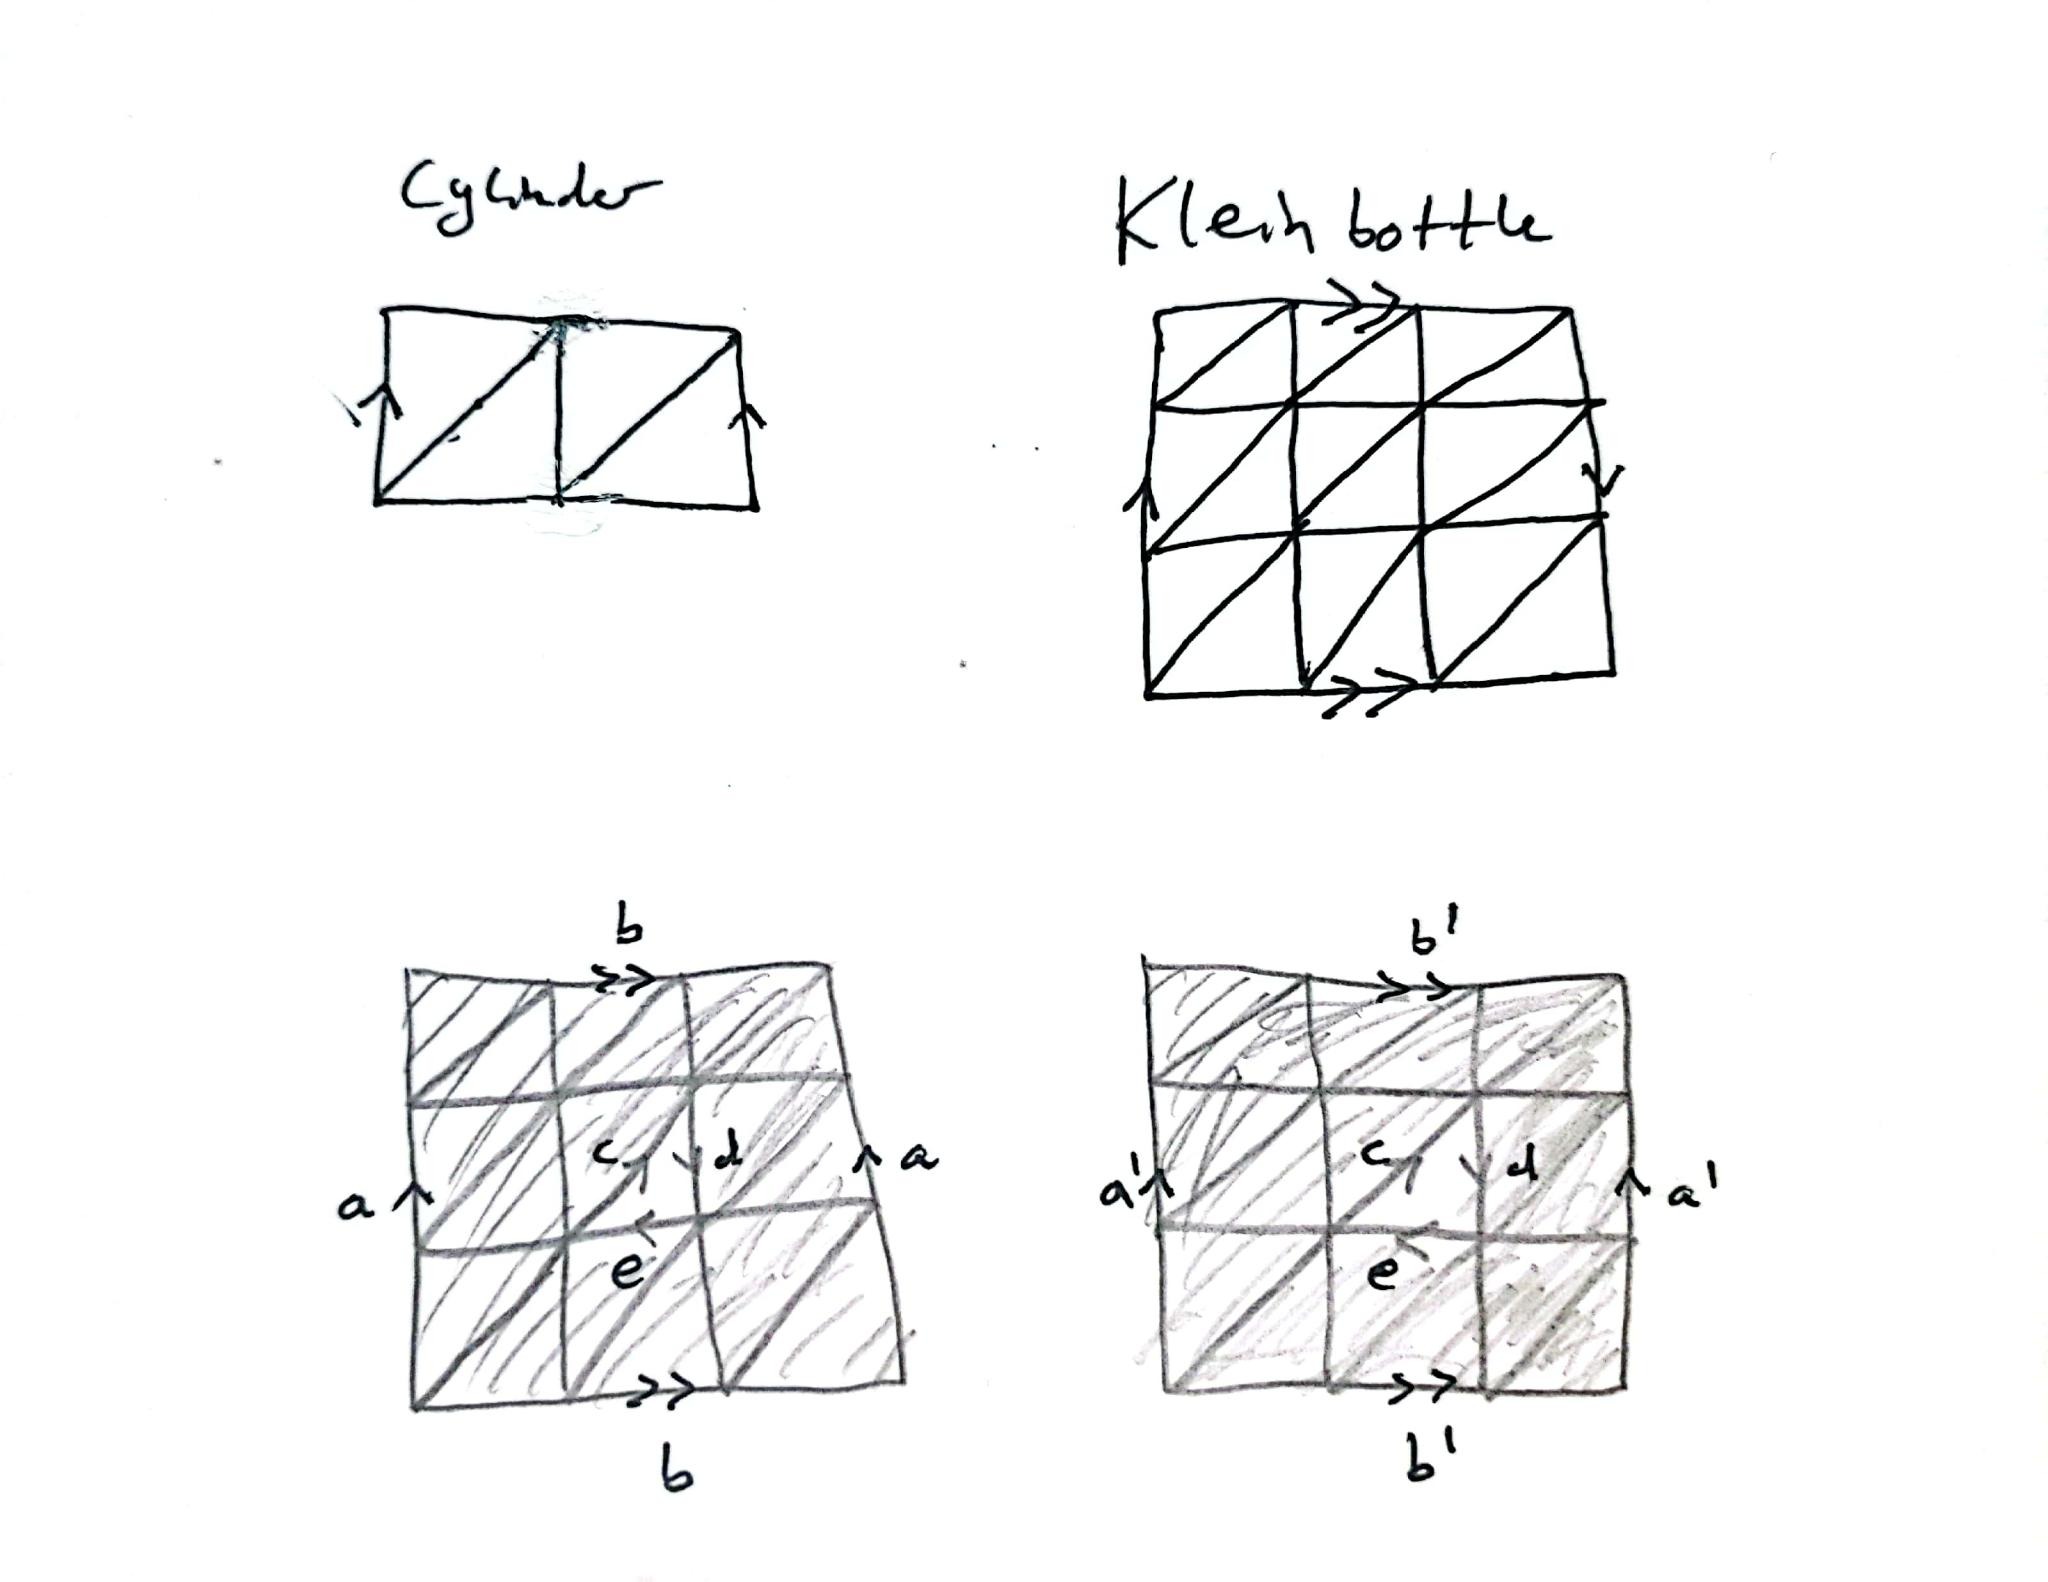 Cylinder
Klein bottle
b
b'
c
d
a
a
e
a'
c
d
a'
e
b
b'